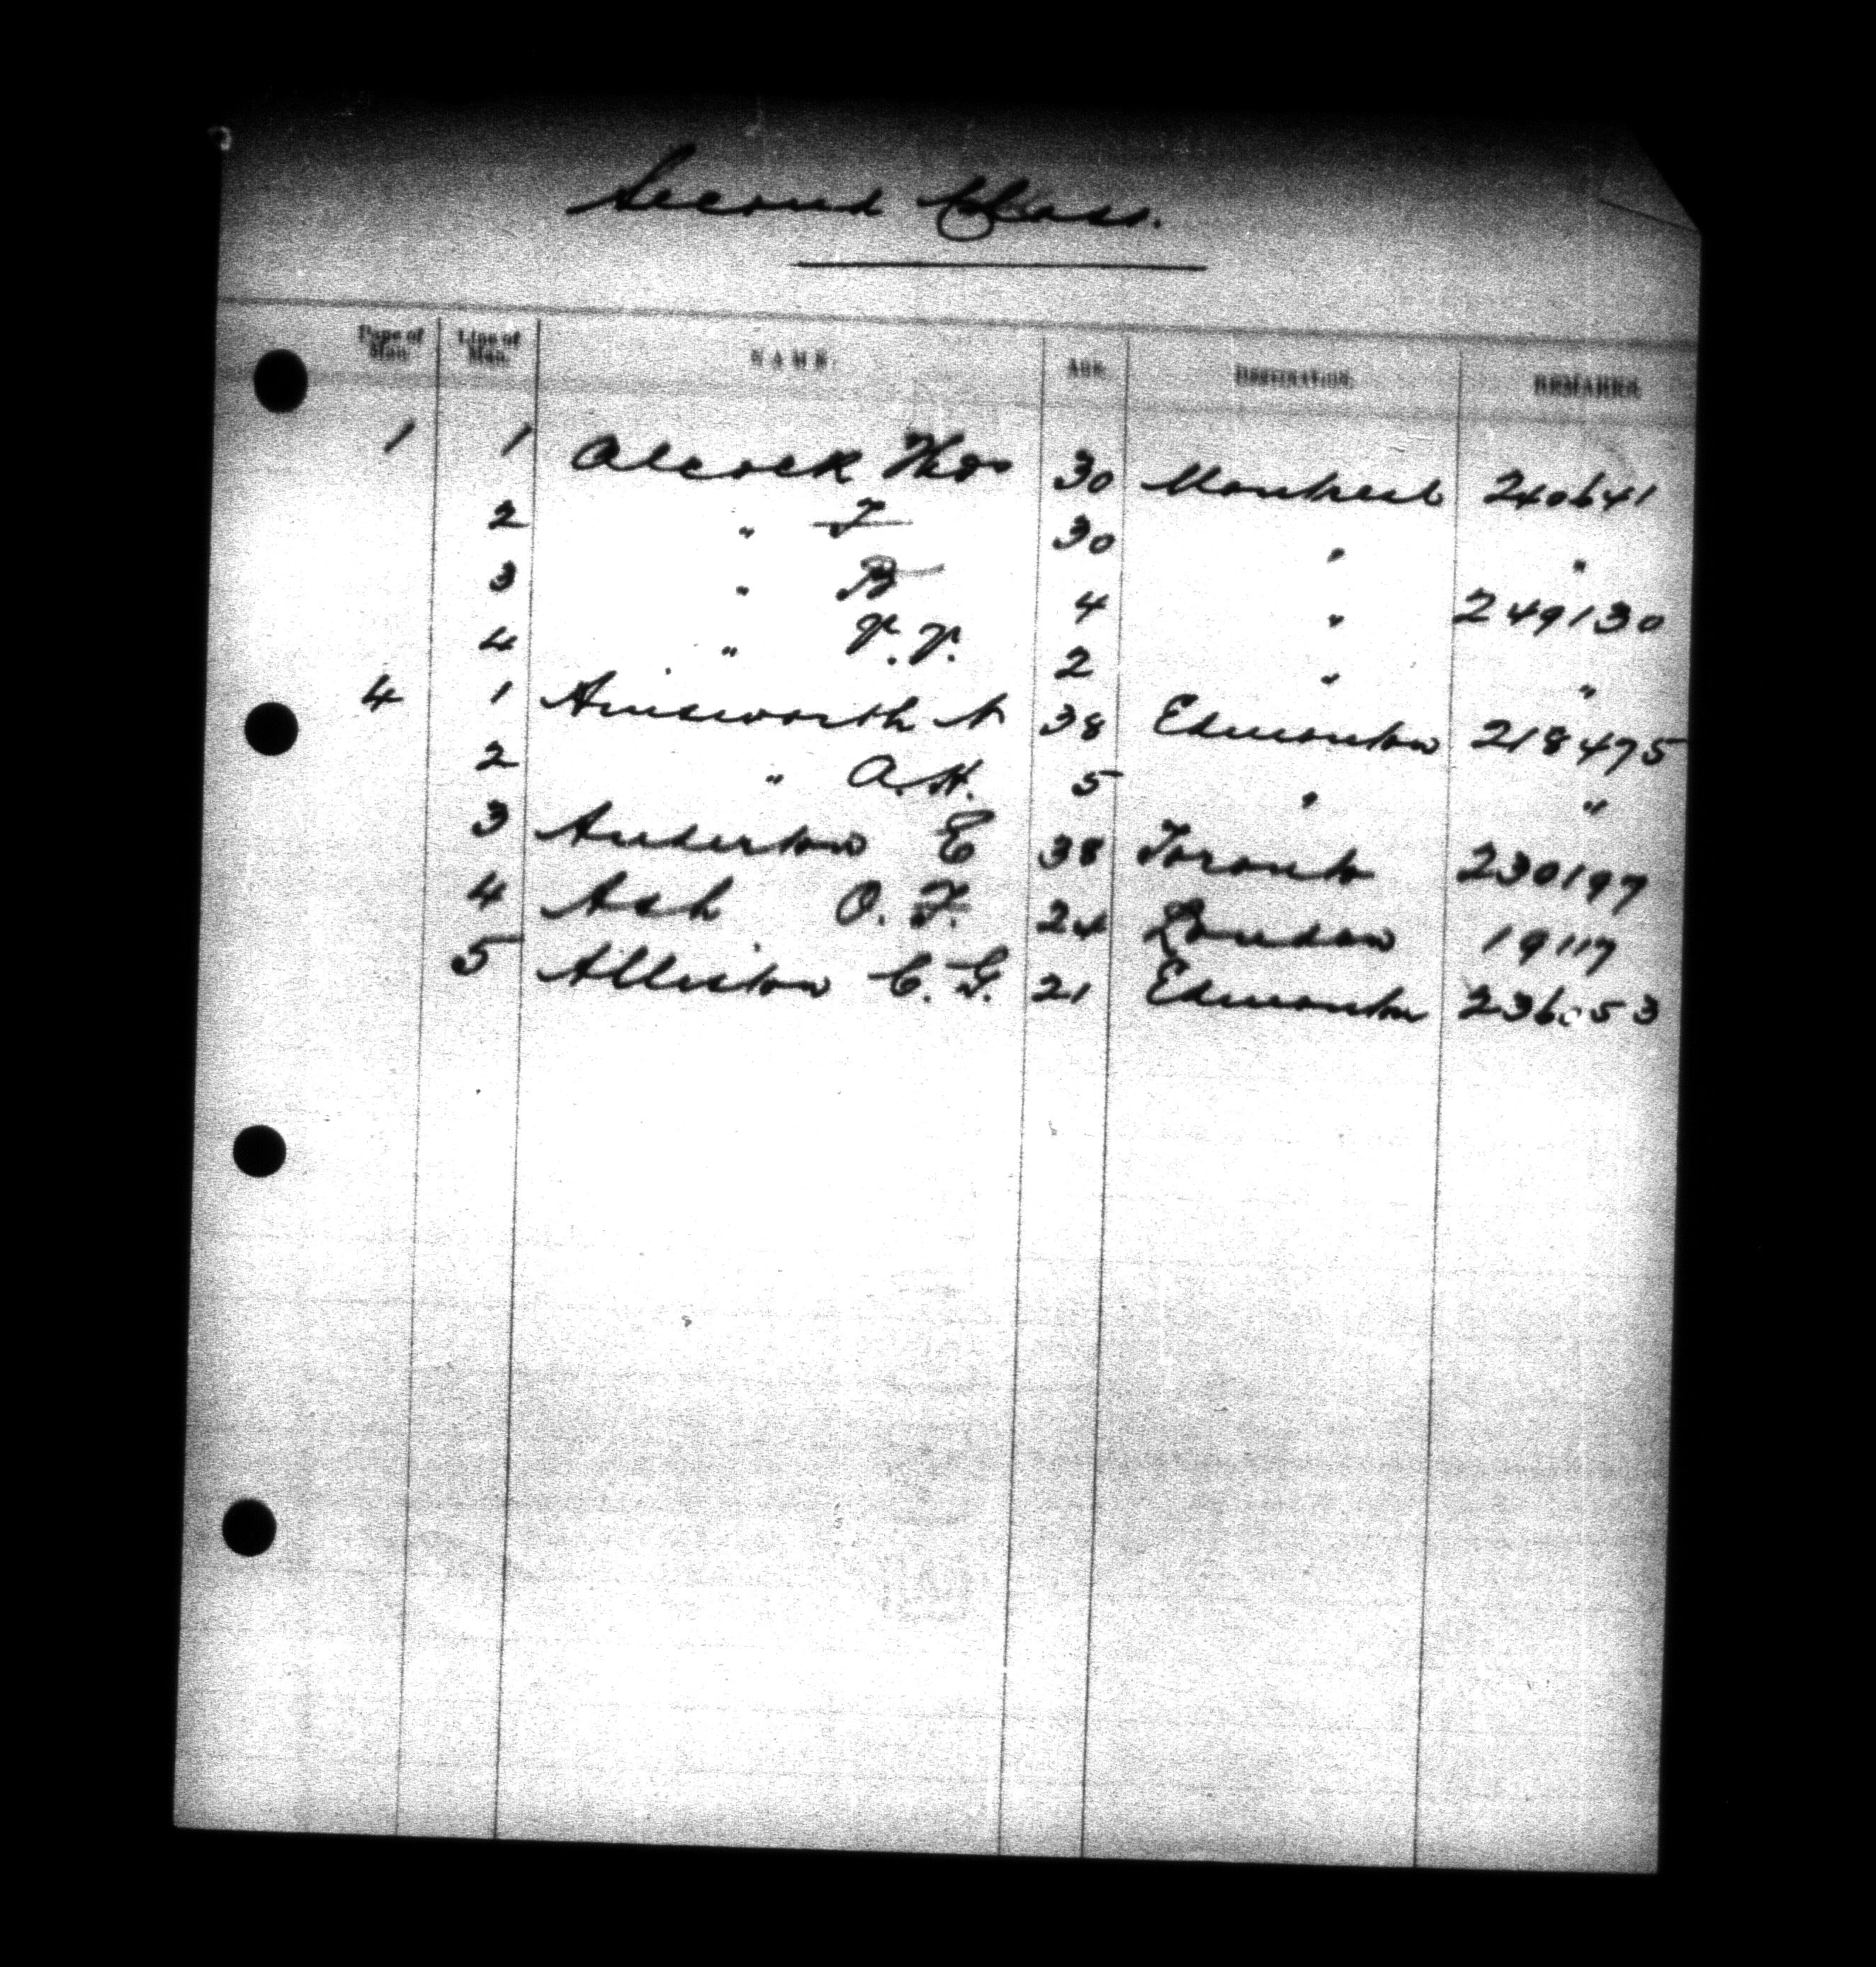 Second Class.
Page of Man. Line of Man. NAME. AGE. DESTINATION. REMARKS.
1 1 Alcock Thos 30 Montreal 240641
2 " F 30 " "
3 " B 4 " 249130
4 " V. V. 2 " "
4 1 Ainsworth A 38 Edmonton 218475
2 " A.H. 5 " "
3 Anderton E 38 Toronto 230197
4 Ash O. F. 24 London 19117
5 Alliston C. G. 21 Edmonton 236053